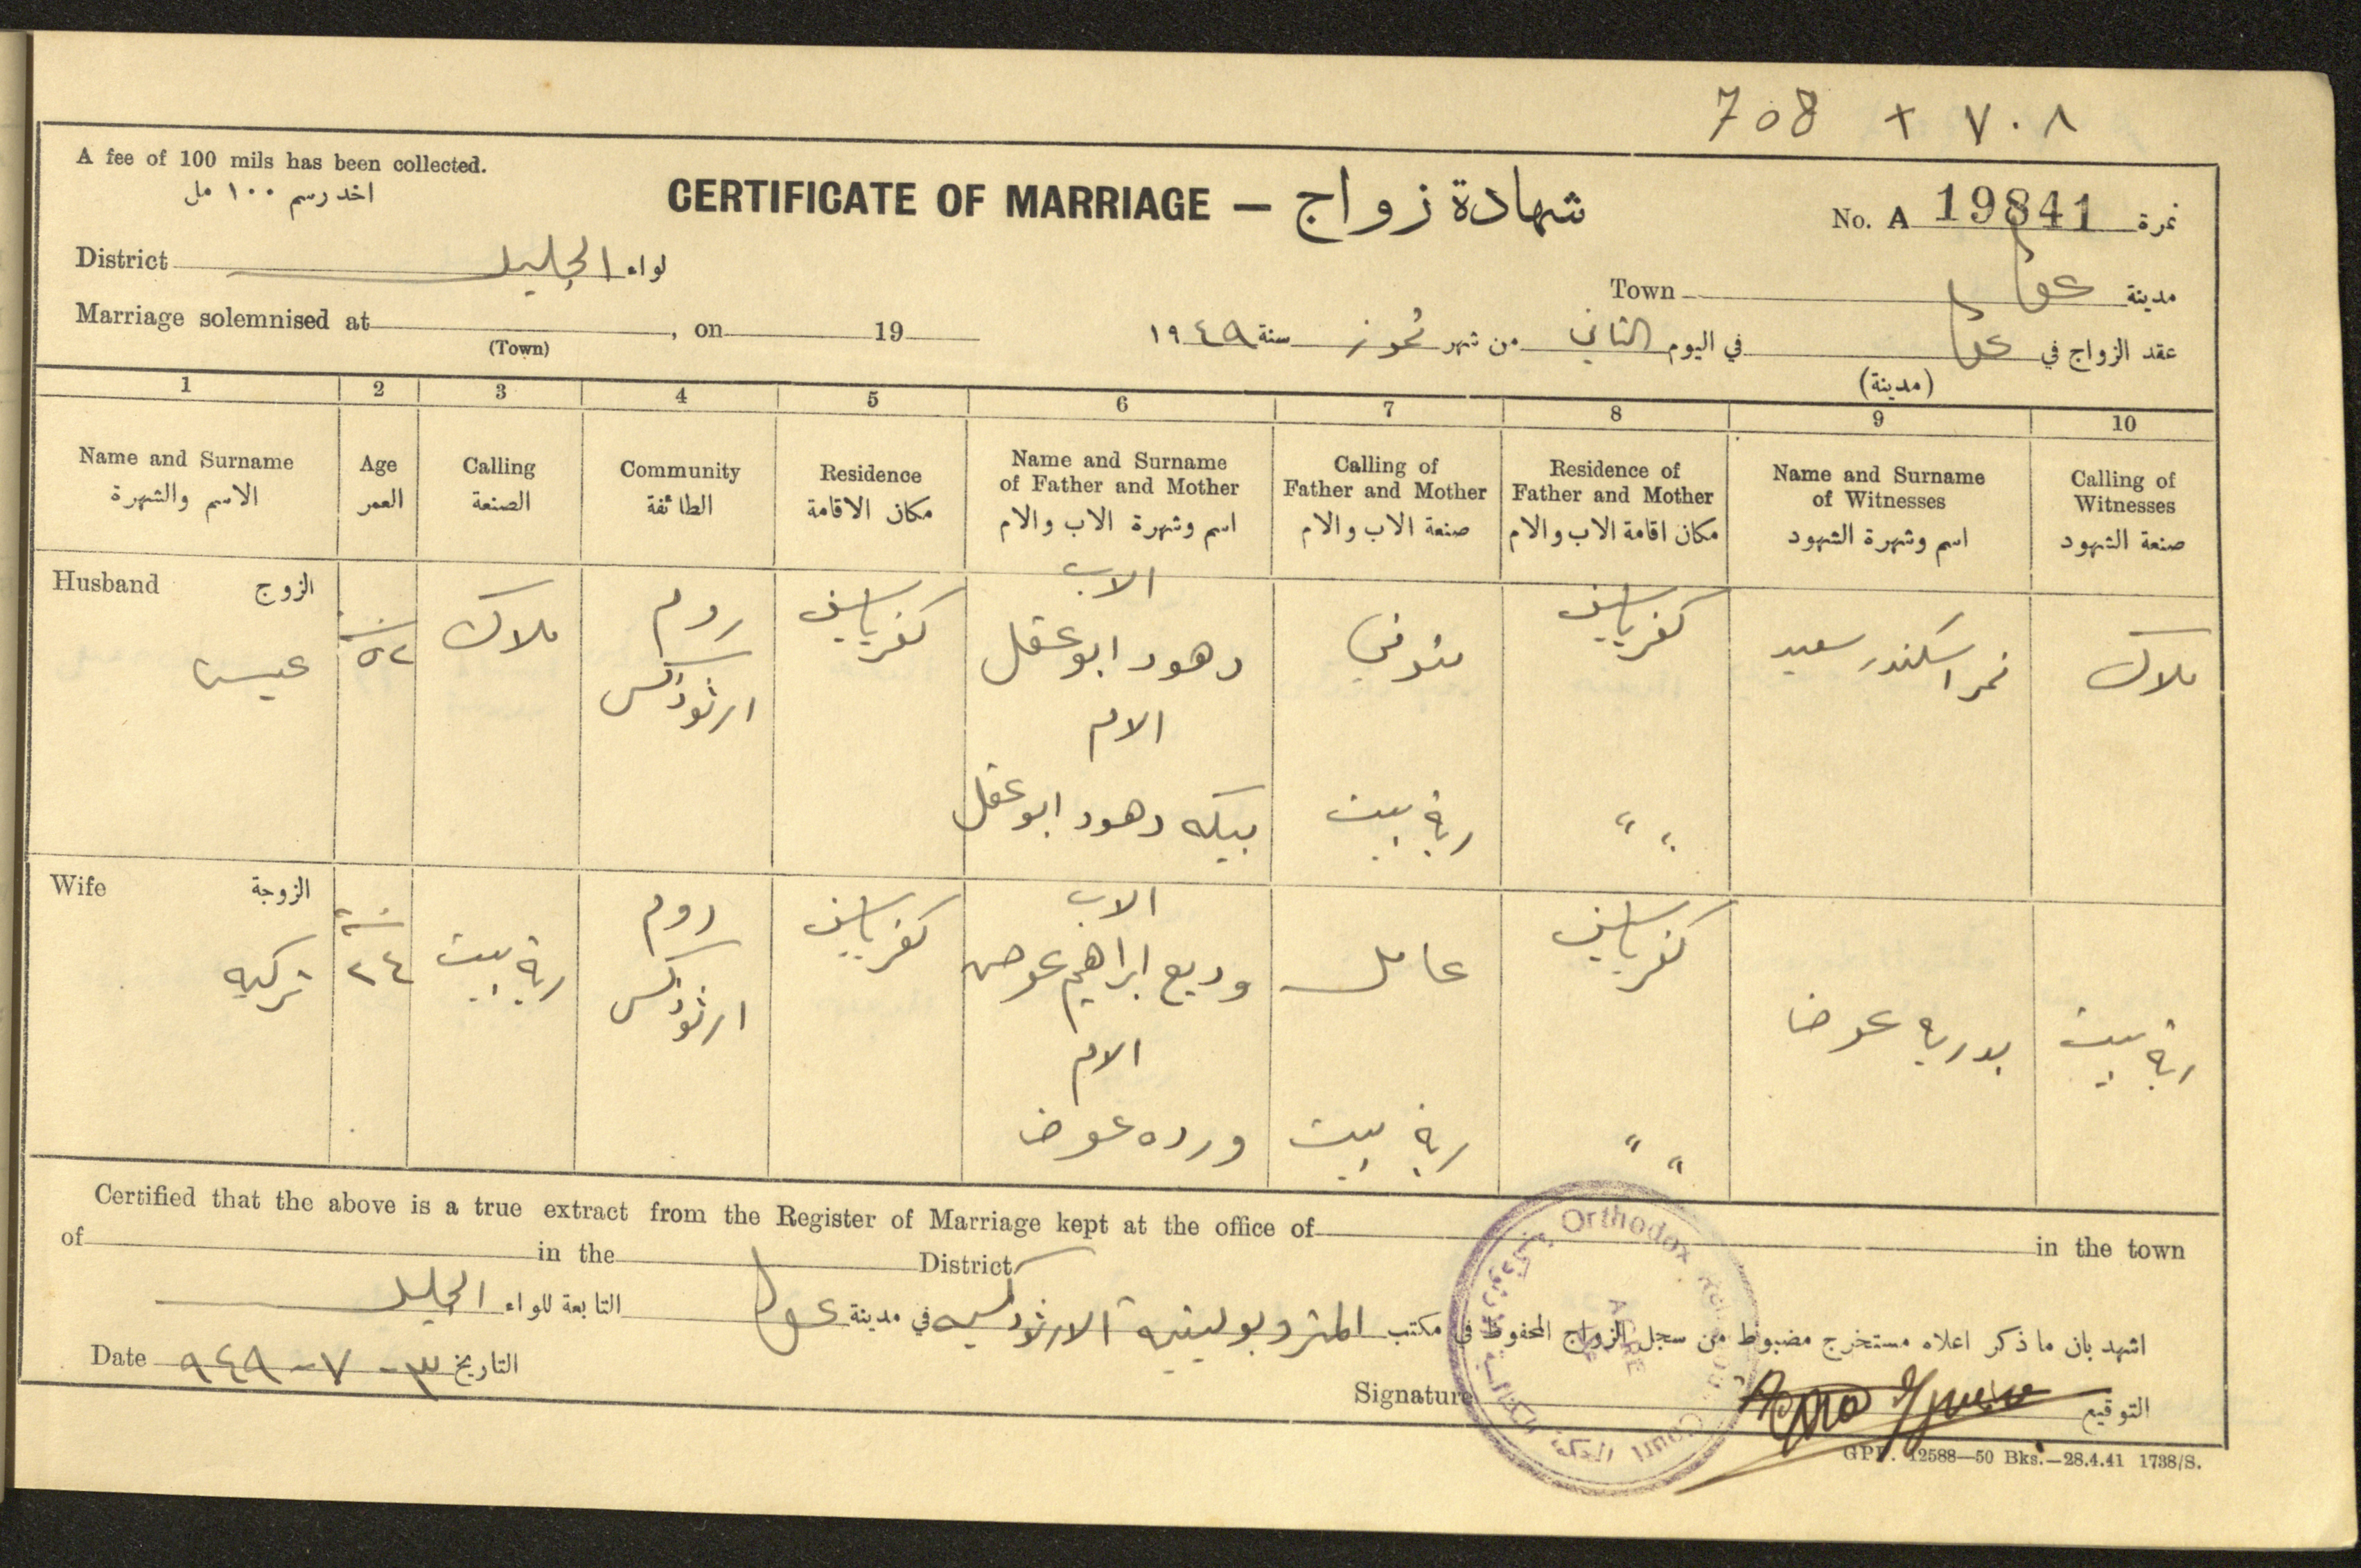 708 + ٧٠٨
A fee of 100 mils has been collected.
اخذ رسم ١٠٠ مل
CERTIFICATE OF MARRIAGE – شهادة زواج
No. A 19841 نمرة
District الجليل لواء
Town عكا مدينة
Marriage solemnised at , on 19
(Town)
عقد الزواج في عكا في اليوم الثاني من شهر تموز سنة ١٩٤٩
(مدينة)
1 2 3 4 5 6 7 8 9 10
Name and Surname
الاسم والشهرة
Age
العمر
Calling
الصنعة
Community
الطائفة
Residence
مكان الاقامة
Name and Surname
of Father and Mother
اسم وشهرة الاب والام
Calling of
Father and Mother
صنعة الاب والام
Residence of
Father and Mother
مكان اقامة الاب والام
Name and Surname
of Witnesses
اسم وشهرة الشهود
Calling of
Witnesses
صنعة الشهود
Husband الزوج
عيسى
سنة
٥٢
ملاك
روم
ارثوذكس
كفرياسيف
الاب
دهود ابو عقل
متوفي
كفرياسيف
نمر اسكندر سعيد
ملاك
الام
بيكه دهود ابو عقل
ربة بيت
" "
Wife الزوجة
تركيه
سنة
٢٤
ربة بيت
روم
ارثوذكس
كفرياسيف
الاب
وديع ابراهيم عوض
عامل
كفرياسيف
بدريه عوض
ربة بيت
الام
ورده عوض
ربة بيت
" "
Certified that the above is a true extract from the Register of Marriage kept at the office of in the town
of in the District
اشهد بان ما ذكر اعلاه مستخرج مضبوط من سجل الزواج المحفوظ في مكتب المتروبوليتية الارثوذكسيه في مدينة عكا التابعة للواء الجليل
Date ٣-٧-٩٤٩ التاريخ
Signature التوقيع
Orthodox Court
ACRE
GPP. 12588—50 Bks.—28.4.41 1738/S.